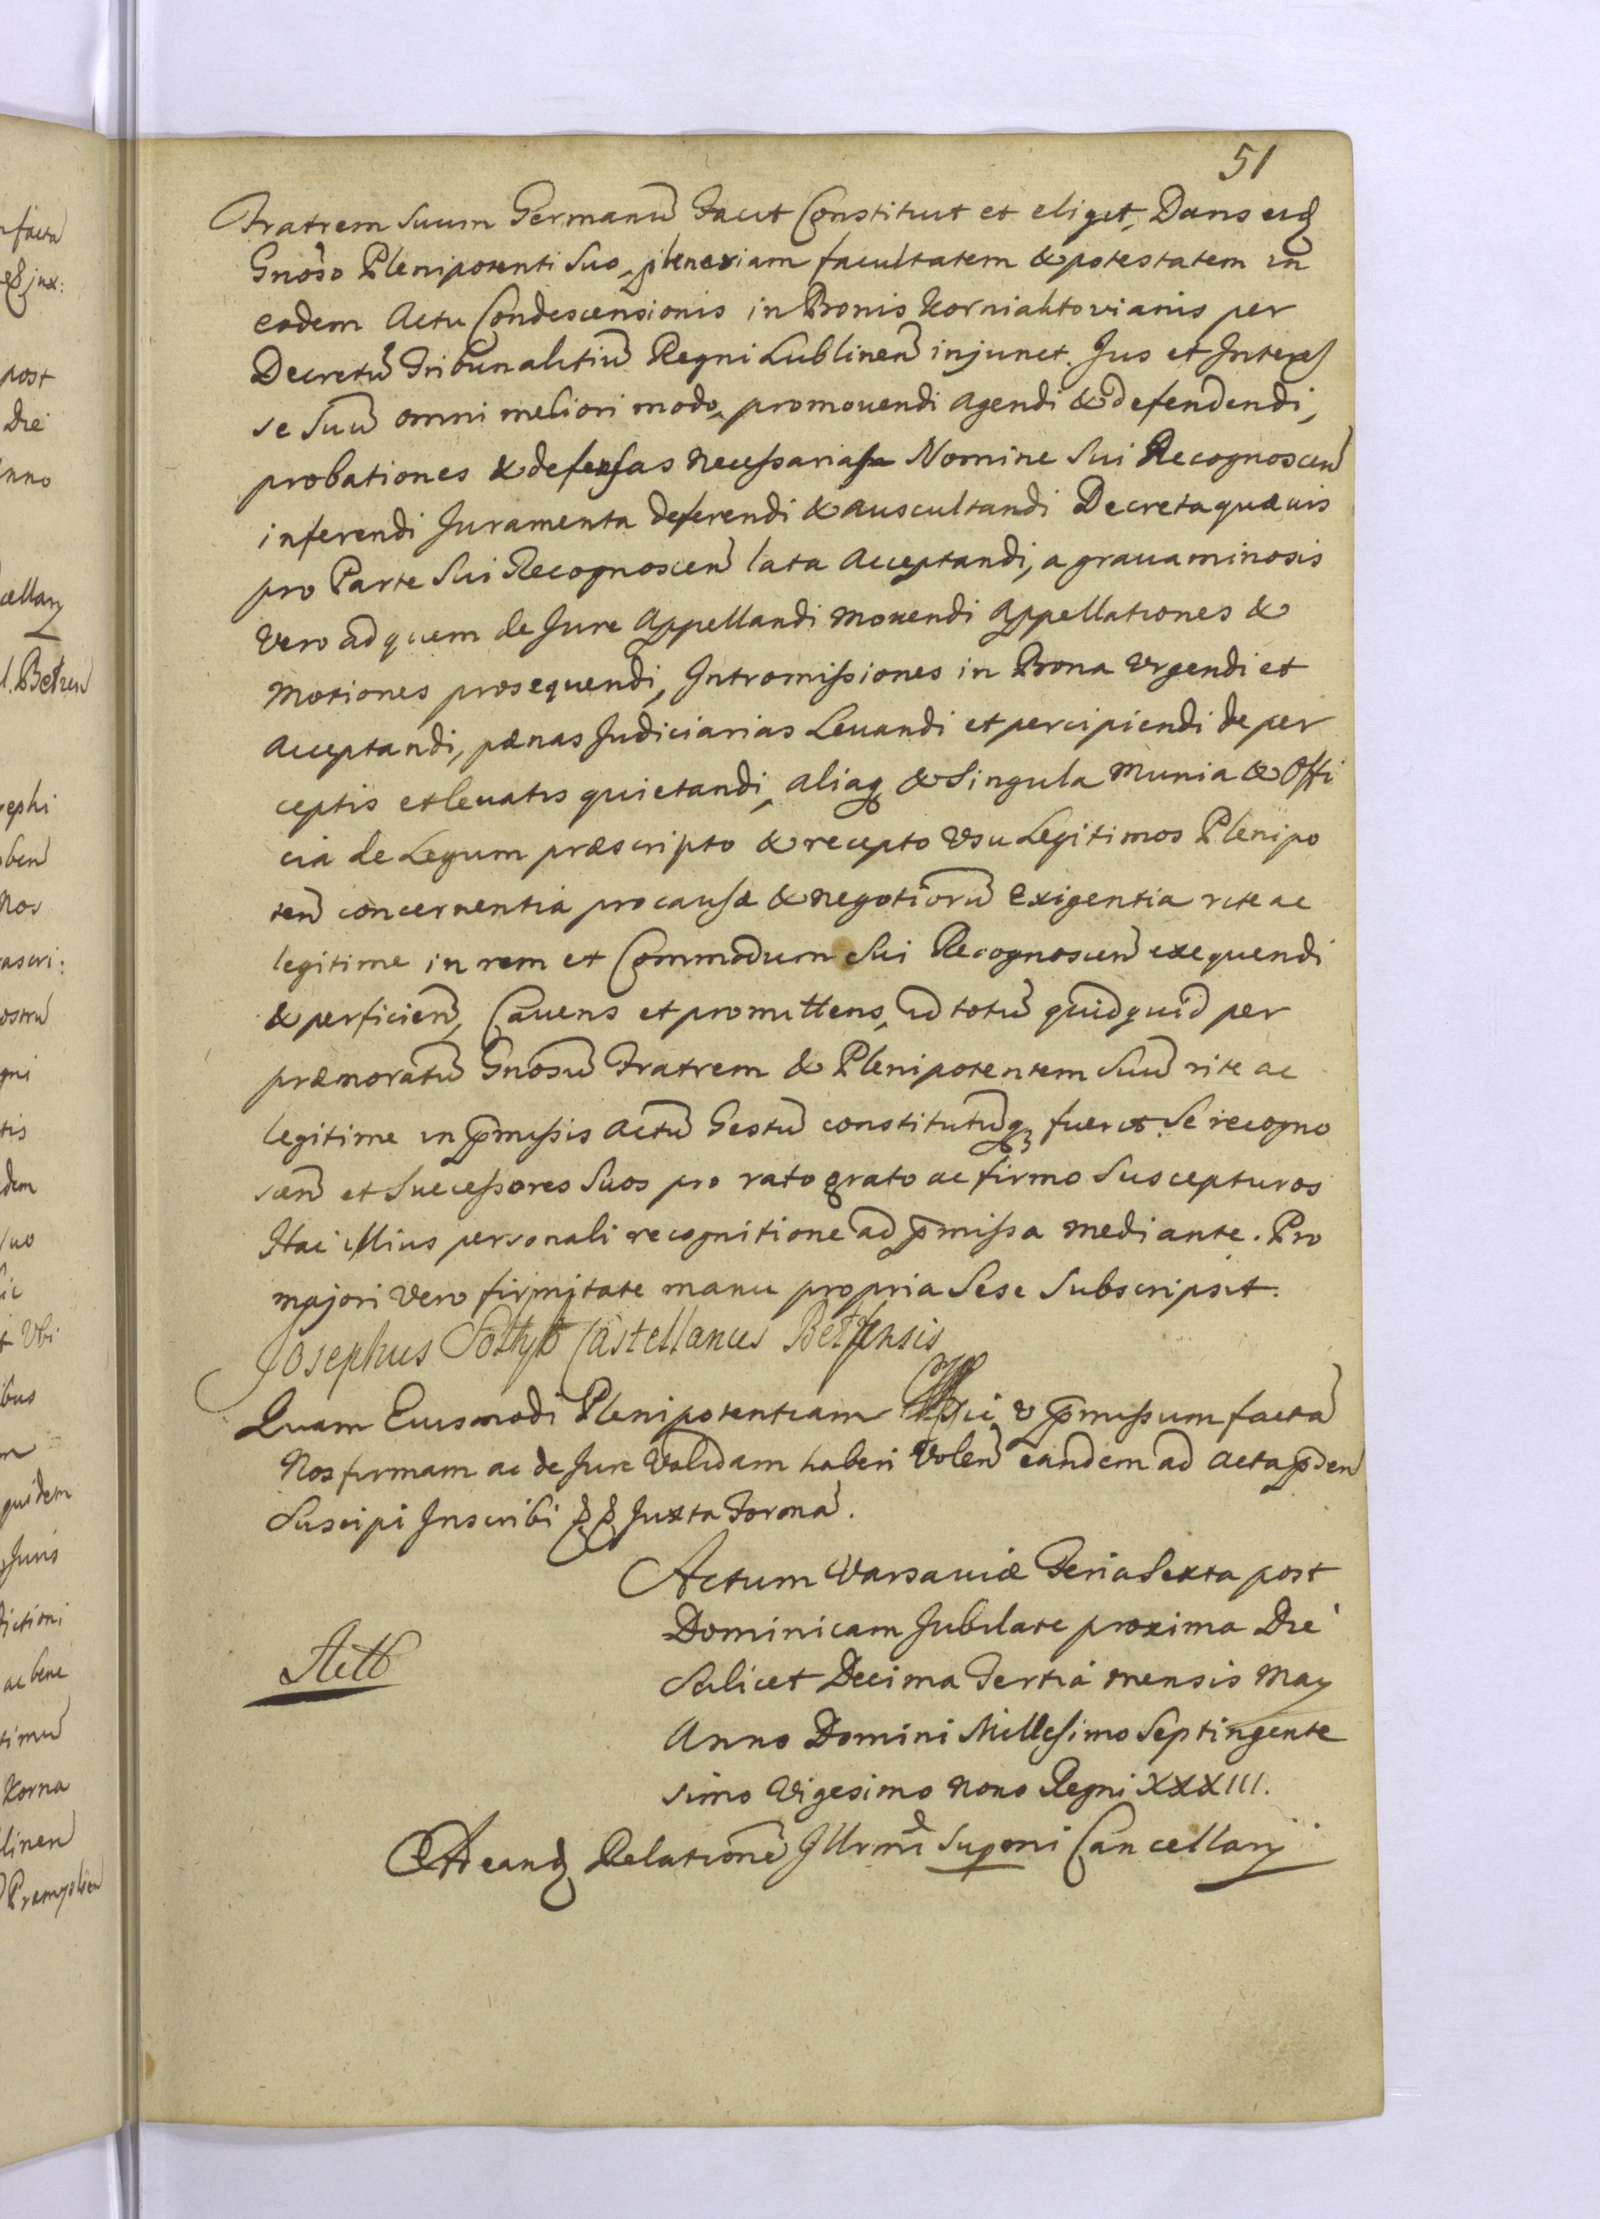 51
Fratrem Suum Germanū Facit Constituit et eligit, Dans eid
Gnoso Plenipotenti Suo, plenariam facultatem & potestatem in
eodem Actu Condescensionis in Bonis Korniaktovianis per
Decretū Tribunalitiū Regni Lublinen̄ injunct. Jus et Interes
se Suū omni meliori modo, promovendi agendi & defendendi,
probationes & defensas necessarias Nomine Sui Recognoscen̄
inferendi Juramenta deferendi & auscultandi Decreta quævis
pro Parte Sui Recognoscen̄ lata acceptandi, a gravaminosis
vero ad quem de Jure Appellandi movendi Appellationes &
motiones prosequendi, Intromissiones in Bona Urgendi et
acceptandi, pænas Judiciarias Levandi et percipiendi de per
ceptis et levatis quietandi, aliaq & Singula Munia & Offi
cia de Legum præscripto & recepto Usu Legitimos Plenipo
ten̄ concernentia pro causæ & negotiorū exigentia rite ac
legitime in rem et Commodum Sui Recognoscen̄ exequendi
& perficien̄, Cavens et promittens, id totū quidquid per
præmoratū Gnosū Fratrem & Plenipotentem Suū rite ac
legitime in pmissis actū Gestū constitutūq fuerit Se recogno
scen̄ et Successores Suos pro rato grato ac firmo Suscepturos
Hac illius personali recognitione ad pmissa mediante. Pro
majori vero firmitate manu propria Sese Subscripsit.
Josephus Sołtyk Castellanus Bełzensis
Quam Eiusmodi Plenipotentiam pmissum facta
Nos firmam ac de Jure Validam haberi Volen̄ eandem ad acta pden
Suscipi Inscribi Juxta Forma.
Actum Varsaviæ Feria Sexta post
Dominicam Jubilate proxima Die
Scilicet Decima Tertia mensis May
Anno Domini Millesimo Septingente
simo Vigesimo Nono Regni XXXIII.
Ad eand Relatione Illrmi Supmi Cancellary